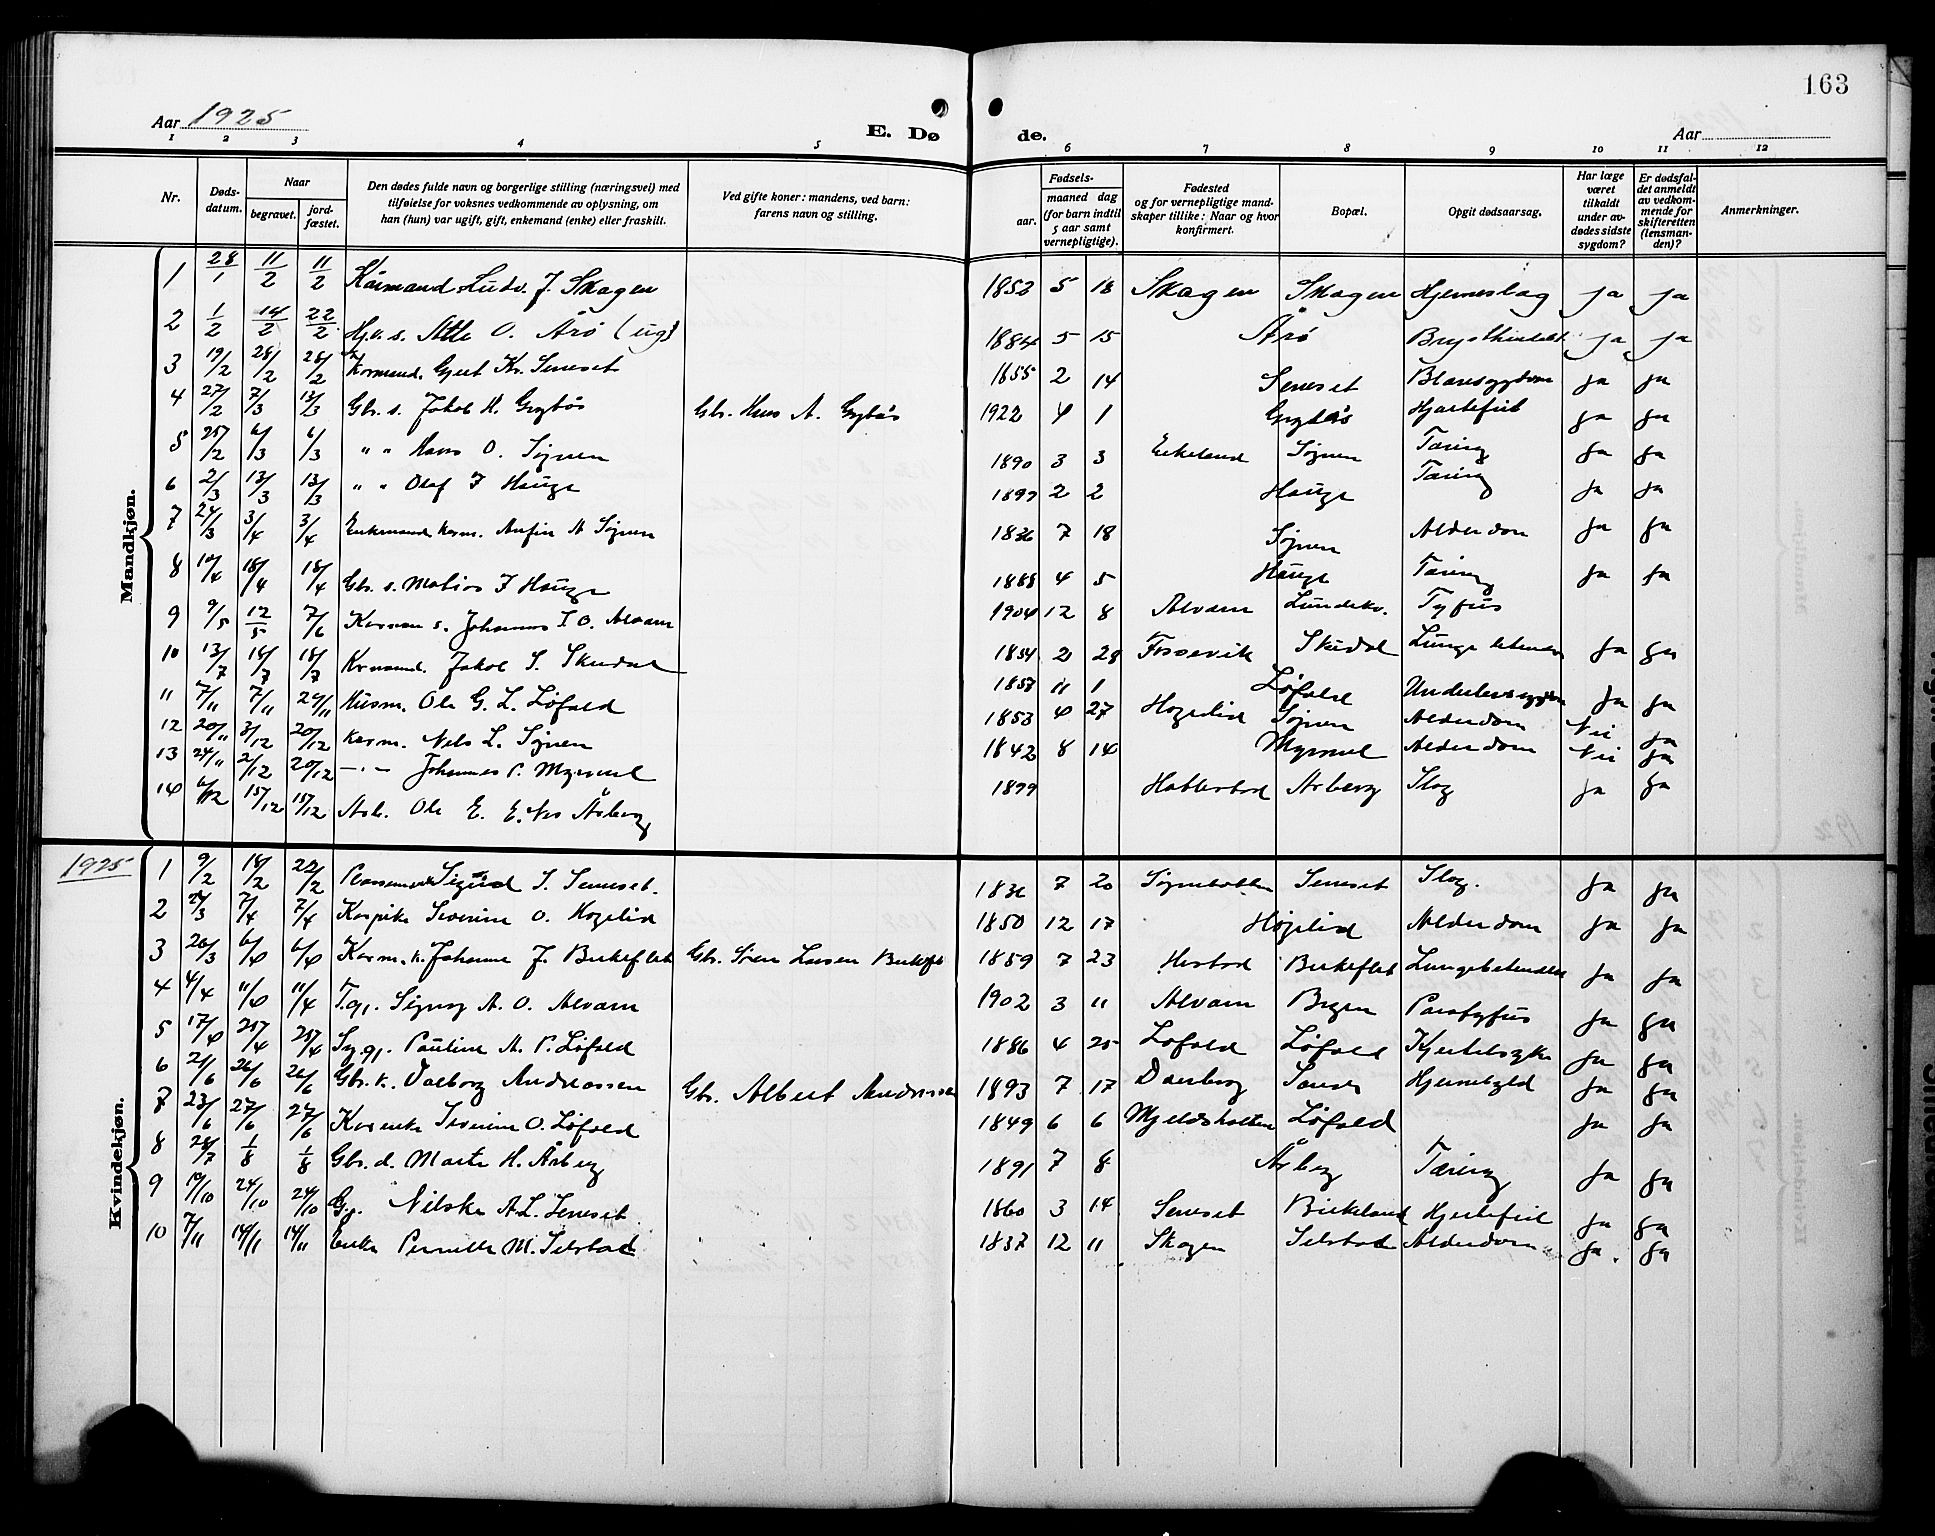 163
Aar 1925
E. Dø
de.
Aar
1 2 3 4 5 6 7 8 9 10 11 12
Nr.
Døds-
datum.
Naar
begravet.
jord-
fæstet.
Den dødes fulde navn og borgerlige stilling (næringsvei) med
tilføielse for voksnes vedkommende av oplysning, om
han (hun) var ugift, gift, enkemand (enke) eller fraskilt.
Ved gifte koner: mandens, ved barn:
farens navn og stilling.
Fødsels-
aar.
maaned dag
(for barn indtil
5 aar samt
vernepligtige).
Fødested
og for vernepligtige mand-
skaper tillike: Naar og hvor
konfirmert.
Bopæl.
Opgit dødsaarsag.
Har læge
været
tilkaldt
under av-
dødes sidste
sygdom?
Er dødsfal-
det anmeldt
av vedkom-
mende for
skifteretten
(lensman-
den)?
Anmerkninger.
Mandkjøn.
1 28/1 11/2 11/2 Kårmand Ludv. J. Skagen 1852 5 18 Skagen Skagen Hjerneslag ja ja
2 1/2 14/2 22/2 Hj.v. s. Atle O. Årø (ug) 1884 5 15 Årø ja ja
3 19/2 28/2 28/2 Kormand. Gjert Kr. Seneset 1855 2 14 Seneset Blæresygdom ja ja
4 27/2 7/3 13/3 Gbr. s. Jakob H. Grytås Gbr. Hans A. Grytås 1922 4 1 Grytås Hjertefeil ja ja
5 25/2 6/3 6/3 " " Hans O. Sognen 1890 3 3 Eikeland Sognen Tæring ja ja
6 2/3 13/3 13/3 " " Olaf J Hauge 1897 2 2 Hauge Tæring ja ja
7 24/3 3/4 3/4 Enkemand korm. Anfin A Sognen 1836 7 18 Sognen Alderdom ja ja
8 10/4 18/4 18/4 Gbr. s. Matias J Hauge 1888 4 5 Hauge Tæring ja ja
9 9/5 12/5 7/6 s. Johannes J. O. Alværn 1904 12 8 Alværn Tyfus
10 13/7 18/7 18/7 Kormand. Jakob S. Skudal 1854 2 28 Fossevik Skudal ja ja
11 7/11 7/11 29/11 Husm. Ole G. L. Løfald 1857 11 1 Løfald ja ja
12 20/11 3/12 20/12 Korm. Nils L. Sognen 1853 4 27 Hogelid Sognen Alderdom Nei ja
13 24/11 2/12 20/12 —"— Johannes P. Myrmel 1842 8 14 Myrmel Alderdom Nei ja
14 6/12 15/12 15/12 Arb. Ole E. E. Nes Årberg 1899 Årberg Slag ja ja
1925
Kvindekjøn.
1 9/2 18/2 22/2 Sigrid S. Seneset. 1836 7 20 Seneset Slag. ja ja
2 24/3 7/4 7/4 Korpike Severine O. Hogelid 1850 12 17 Høgelid Alderdom ja ja
3 26/3 6/4 6/4 Korm. k. Johanne J. Birkeflet Gbr. Søren Larsen Birkefl 1859 7 23 Hestad Birkeflet Lungebetendelse ja ja
4 4/4 11/4 11/4 T.gj. Signy A. O. Alværn 1902 3 11 Alværn Bergen Paratyfus ja ja
5 17/4 25/4 25/4 Sy.gj. Pauline A. P. Løfald 1886 4 25 Løfald Løfald ja ja
6 21/6 26/6 26/6 Gbr. k. Valborg Andreassen Gbr. Albert Andreassen 1893 7 17 Sande ja ja
7 23/6 27/6 27/6 Korenke Severine O. Løfald 1849 6 6 Mjeldsholten Løfald ja ja
8 28/7 1/8 1/8 Gbr. d. Marte H. Årberg 1891 7 8 Årberg Tæring ja ja
9 19/10 24/10 24/10 Gj. Nilska A. L. Seneset 1860 3 14 Seneset Birkeland Hjertefeil ja ja
10 7/11 14/11 14/11 Enke Pernille M. Selstad 1837 12 11 Skagen Selstad Alderdom ja. ja